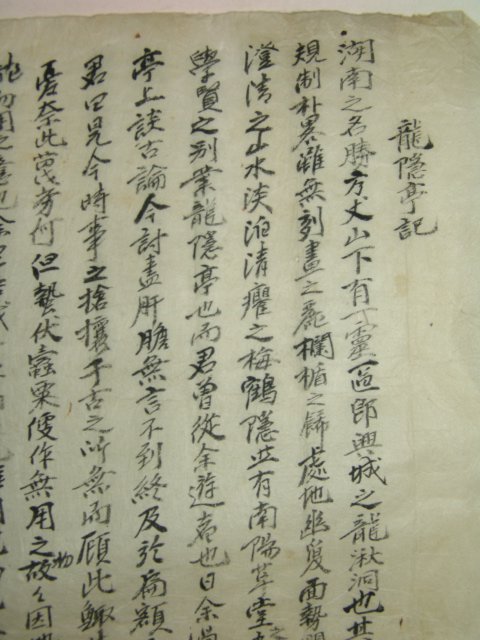 龍隱亭記
湖南之名勝方丈山下有一靈區卽興城之龍湫洞也其
規制朴畧雖無刻畫之麗欄楯之歸處地幽夐面勢
澄清之山水淡泊清癯之梅鶴隱並有南陽草堂之
學賢之别業龍隱亭也而君曾從余遊者也日余
亭上談古論今討盡肝膽無言不到終及於扁額
君曰見今時事之搶攘千古之所無而顧此
憂奈此萬務何但蟄伏窮栗便作無用之物故因
龍勿用之